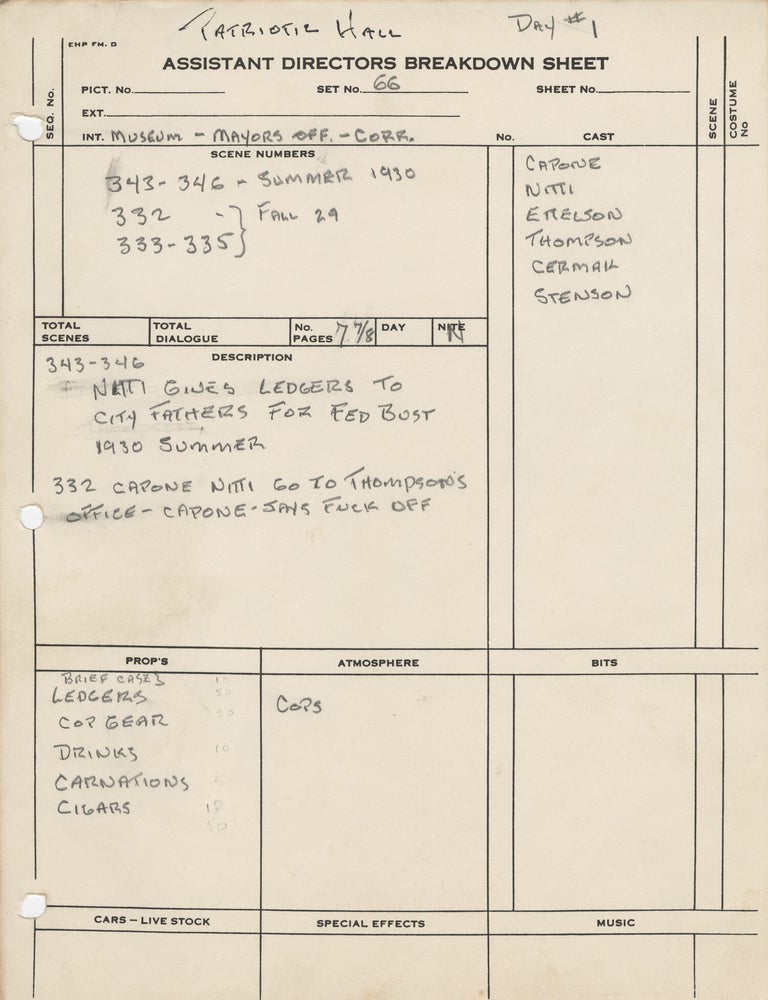 PATRIOTIC HALL DAY #1
EHP FM. D
ASSISTANT DIRECTORS BREAKDOWN SHEET
PICT. No. SET No. 66 SHEET No.
EXT.
INT. MUSEUM - MAYORS OFF. - CORR.
SEQ. No.
No. CAST
SCENE
COSTUME No
SCENE NUMBERS
343-346 - SUMMER 1930
332 - } FALL 29
333-335 }
CAPONE
NITTI
ETTELSON
THOMPSON
CERMAK
STENSON
TOTAL SCENES
TOTAL DIALOGUE
No. PAGES 7 7/8
DAY
NITE N
DESCRIPTION
343-346
NITTI GIVES LEDGERS TO
CITY FATHERS FOR FED BUST
1930 SUMMER
332 CAPONE NITTI GO TO THOMPSON'S
OFFICE - CAPONE - SAYS FUCK OFF
PROP'S
BRIEF CASES 10
LEDGERS 50
COP GEAR 20
DRINKS 10
CARNATIONS
CIGARS 10
50
ATMOSPHERE
COPS
BITS
CARS — LIVE STOCK
SPECIAL EFFECTS
MUSIC